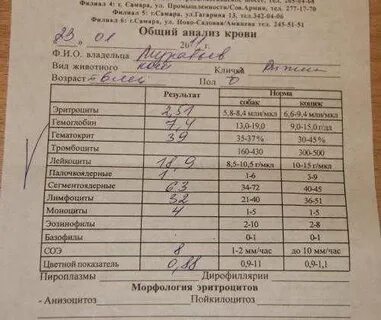 Филиал 4: г.Самара, ул. Промышленности/Сов.Армии, тел. 277-17-70
Филиал 6: г.Самара, ул.Гагарина 13, тел.342-04-06
Филиал 5: г.Самара, ул. Ново-Садовая/Аминева тел. 245-51-51
Общий анализ крови
23 01 20
Ф.И.О. владельца
Вид животного Кличка
Возраст 6 лет Пол
Результат Норма
собак кошек
Эритроциты 2,51 5,8-8,4 млн/мкл 6,6-9,4 млн/мкл
Гемоглобин 7,4 13,0-19,0 9,0-15,0 г/дл
Гематокрит 39 35-37% 30-45%
Тромбоциты 160-430 300-500
Лейкоциты 18,9 8,5-10,5 г/мкл 10-15 г/мкл
Палочкоядерные 1 1-6 3-9
Сегментоядерные 63 34-72 40-45
Лимфоциты 32 21-40 36-51
Моноциты 4 1-5 1-5
Эозинофилы 2-10 2-10
Базофилы 0-1 0-1
СОЭ 8 1-2 мм/час до 10 мм/час
Цветной показатель 0,88 0,9-1,1 0,9-1,1
Пироплазмы Дирофиллярии
Морфология эритроцитов
- Анизоцитоз Пойкилоцитоз